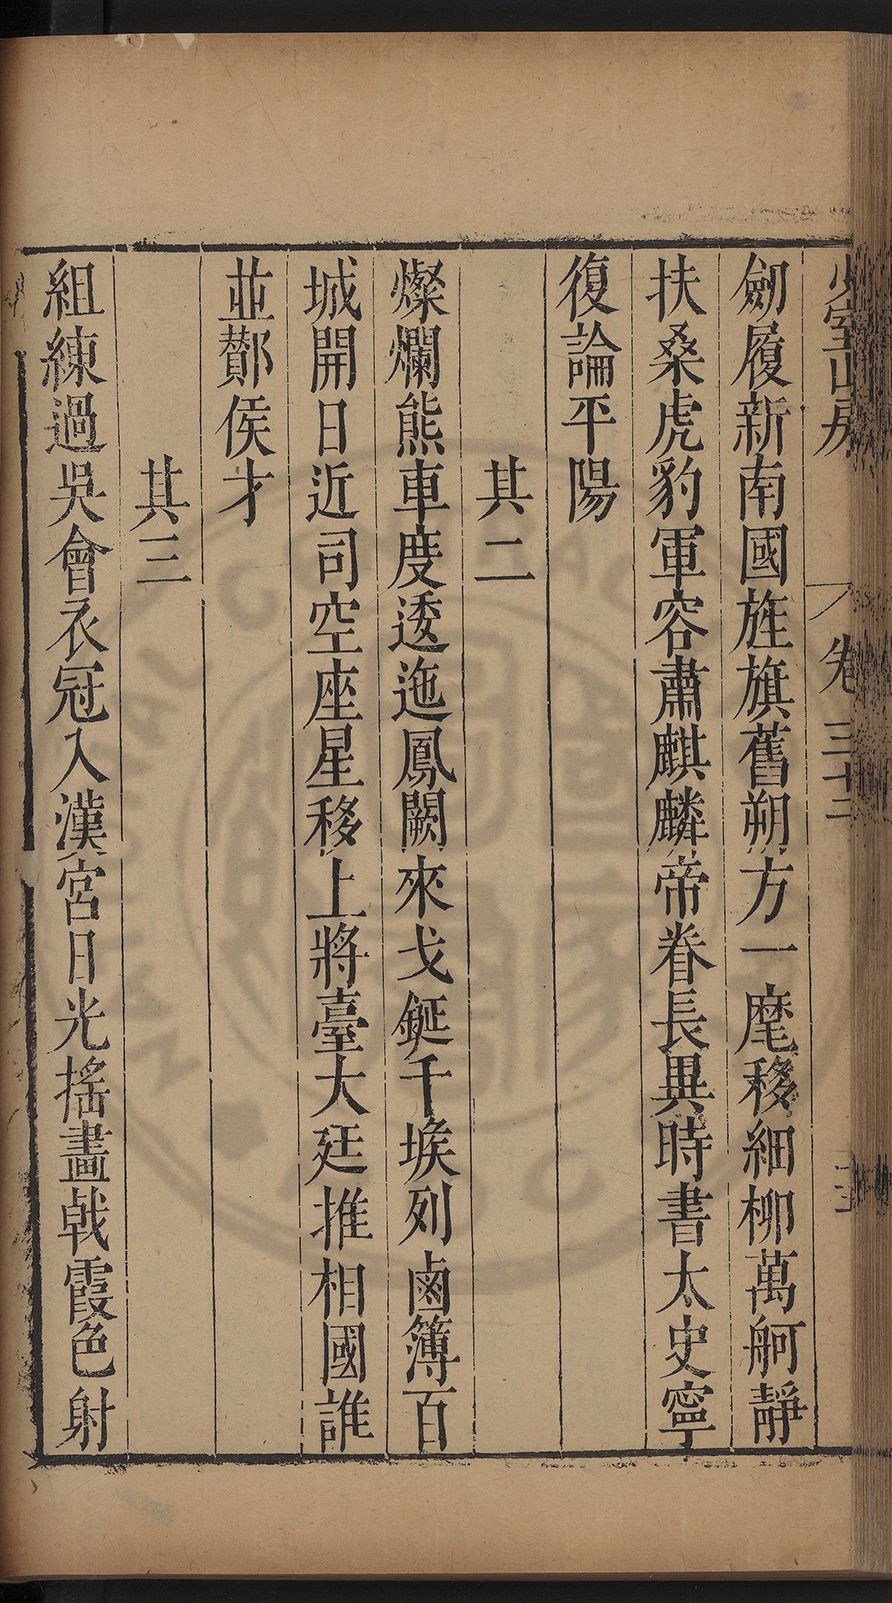 少室山房 卷三十二
劒履新南國旌旗舊朔方一麾移細柳萬舸靜
扶桑虎豹軍容肅麒麟帝眷長異時書太史寧
復論平陽
其二
燦爛熊車度逶迤鳳闕來戈鋋千堠列鹵簿百
城開日近司空座星移上將臺大廷推相國誰
並酇侯才
其三
組練過吳會衣冠入漢宮日光搖畫戟霞色射